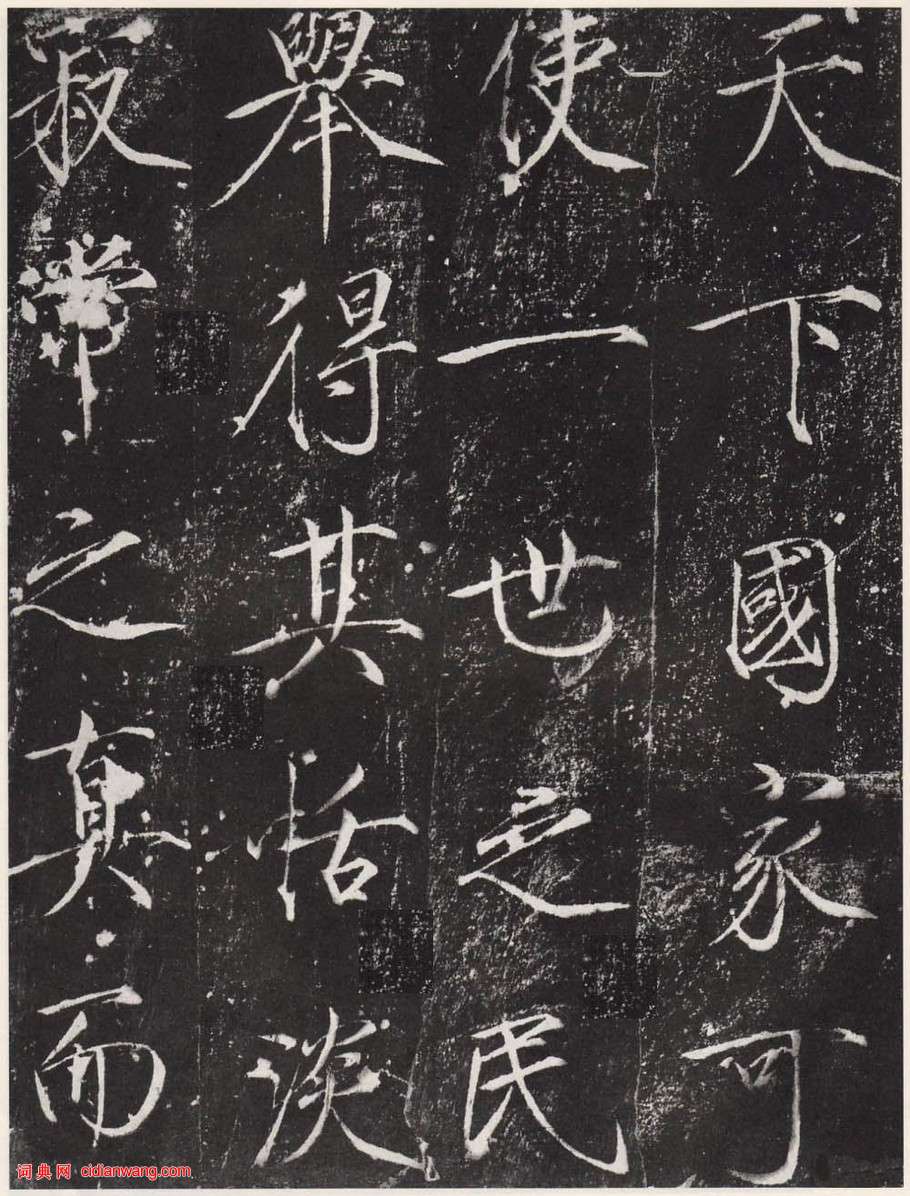 天下國家可
使一世之民
舉得其恬淡
寂常之真而
词典网 cidianwang.com